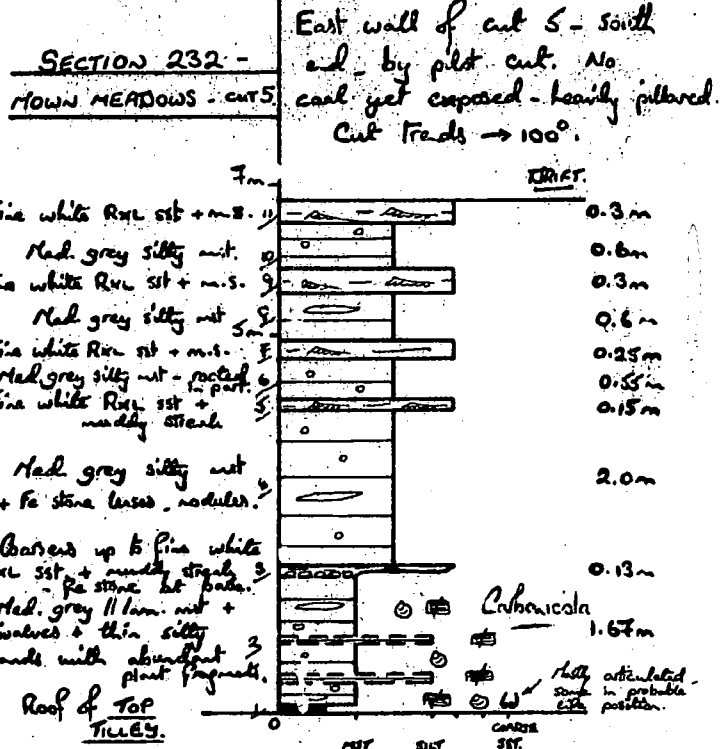 SECTION 232 -
MOWN MEADOWS - CUT 5.
East wall of cut 5 - South
end - by pilot cut. No
coal yet exposed - heavily pillared.
Cut trends → 100°.
7m
DRIFT.
ine white RXL sst + m.s. 11
0.3m
Med grey silty mst. 10
0.6m
ine white RXL sst + m.s. 9
0.3m
Med grey silty mst 8
0.6m
5m
ine white RXL sst + m.s. 7
0.25m
Med grey silty mst - rooted in part. 6
0.55m
ine white RXL sst + 5
muddy streak
0.15m
Med. grey silty mst 4
+ Fe stone lenses, nodules.
2.0m
Coarsens up to fine white
XL sst + muddy streaks 3
- Fe stone at base.
0.13m
Med. grey // lam. mst +
ivalves + thin silty 2
ands with abundant
plant fragments.
Carbonicola
1.67m
Mostly articulated -
some in probable
position.
Roof of TOP
TILLEY.
1
0
MST SILT COARSE
SST.